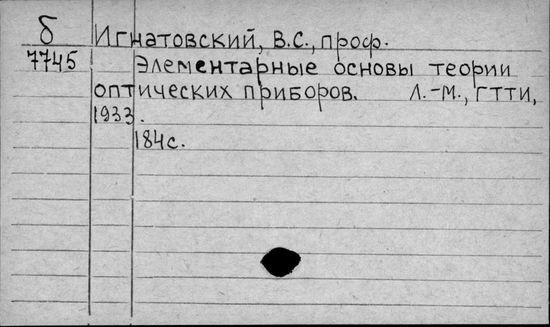 б Игнатовский, В.С., проф.
7745 Элементарные основы теории
оптических приборов. Л.-М., ГТТИ,
1933.
184с.